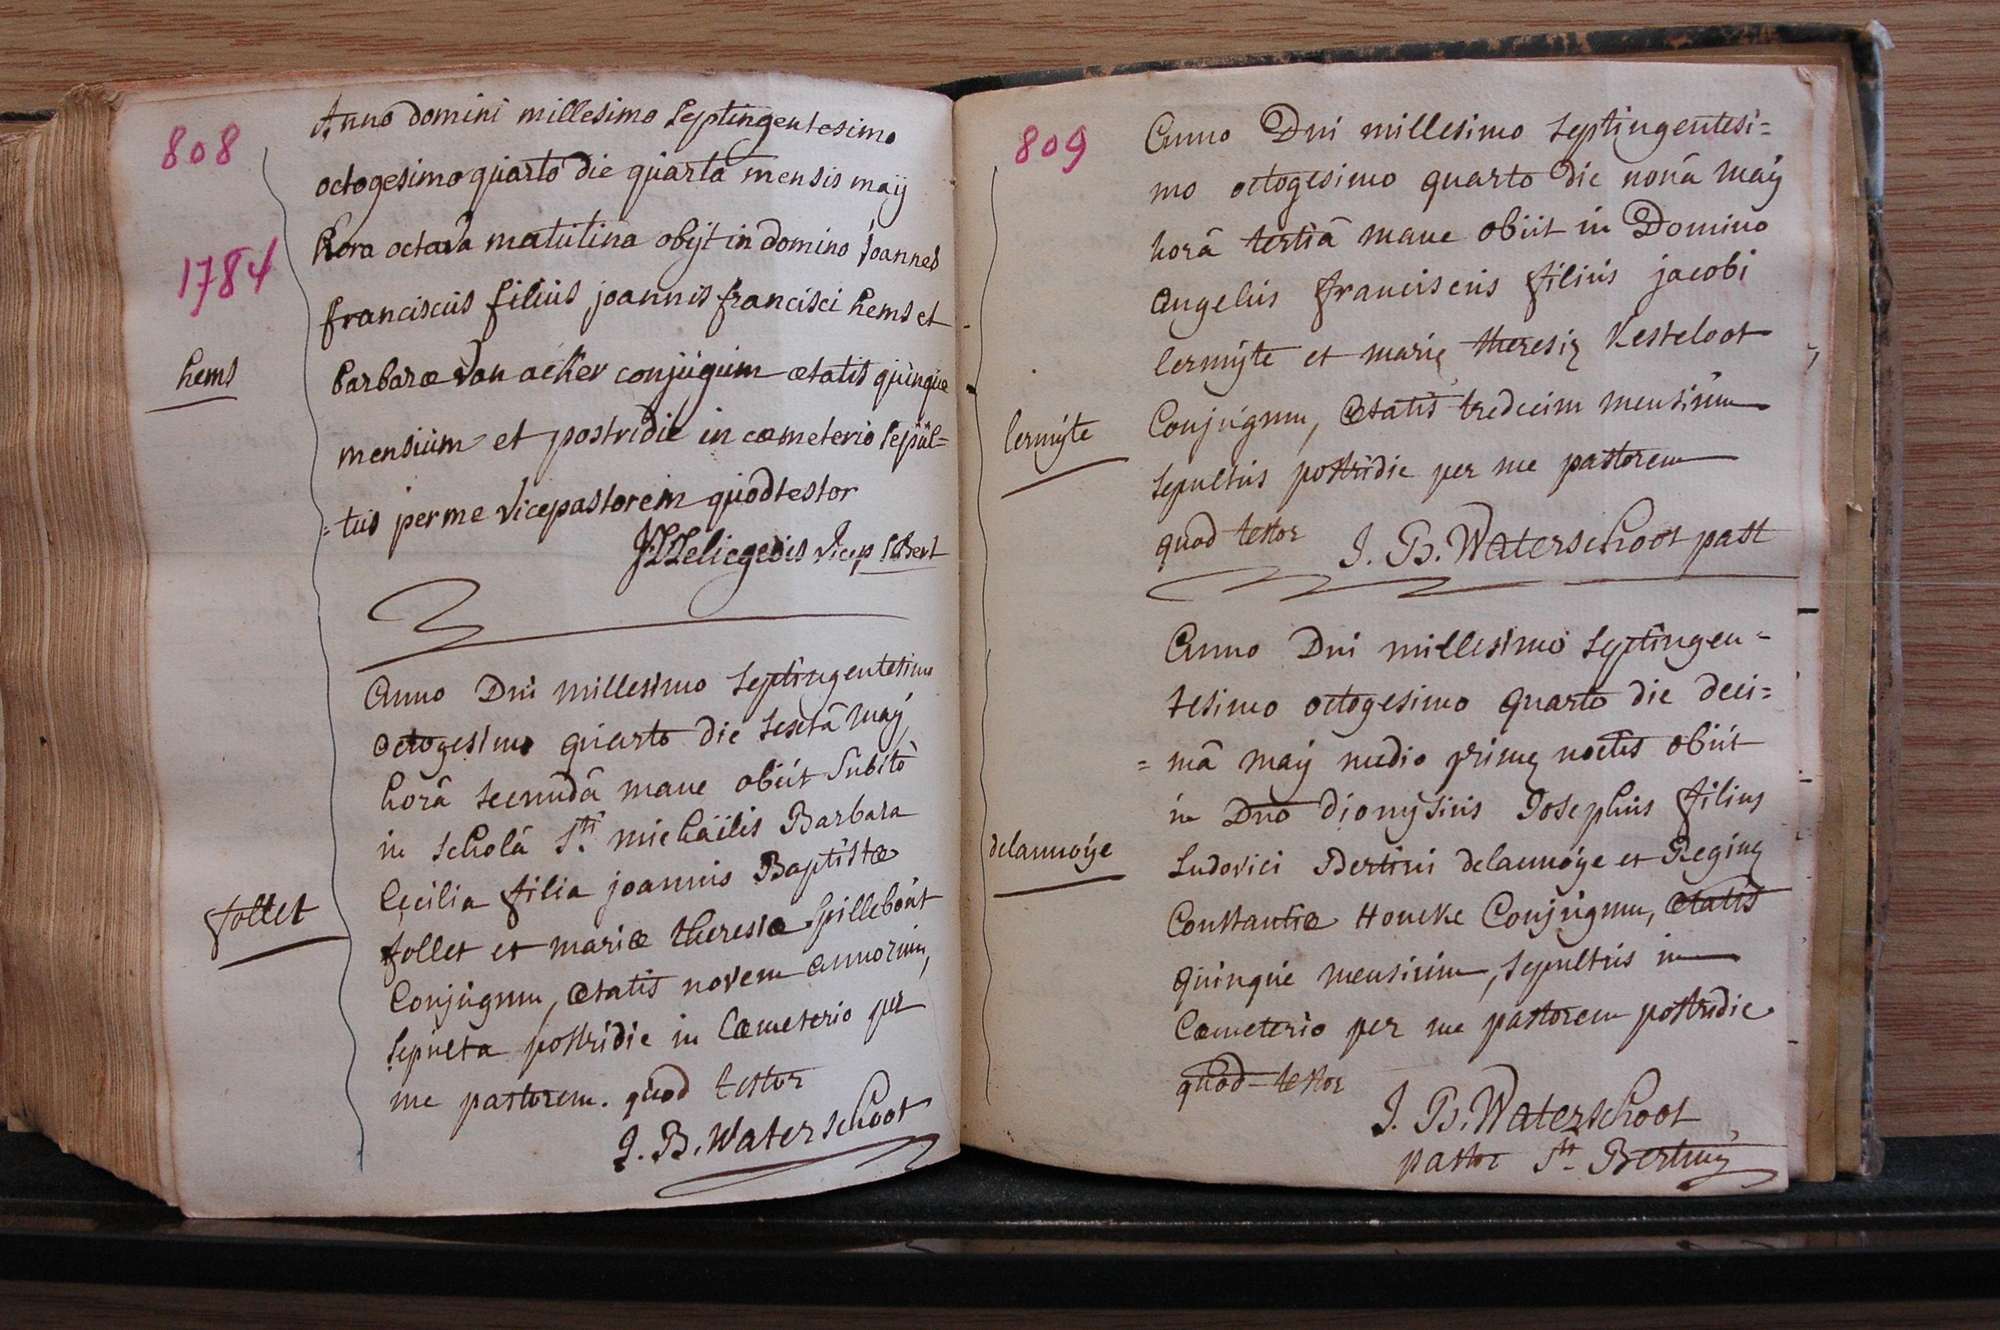 808
1784
Anno domini millesimo septingentesimo
octogesimo quarto die quarta mensis maij
hora octava matutina obijt in domino joannes
franciscus filius joannis francisci hems et
hems
barbaræ van acker conjugum ætatis quinque
mensium et postridie in cœmeterio sepul=
=tus per me vicepastorem quod testor
vicep s Bert
Anno Dni millesimo septingentesimo
octogesimo quarto die sextâ maÿ
horâ secundâ mane obiit subito
in scholâ Sti michaëlis Barbara
Cecilia filia joannis Baptistæ
follet
follet et mariæ theresiæ spillebout
Conjugum, ætatis novem annorum,
sepulta postridie in Cœmeterio per
me pastorem. quod testor
J. B. Waterschoot
809
Anno Dni millesimo septingentesi=
mo octogesimo quarto die nonâ maÿ
horâ tertiâ mane obiit in Domino
Angelus franciscus filius jacobi
lermÿte et marię theresię Kesteloot
lermÿte
Conjugum, ætatis tredecim mensium
sepultus postridie per me pastorem
quod testor J. B. Waterschoot past
Anno Dni millesimo septingen=
tesimo octogesimo quarto die deci=
=mâ maÿ medio primę noctis obiit
in Dno dionÿsius Josephus filius
delannoÿe
Ludovici Bertini delannoÿe et Reginę
Constantiæ Honcke Conjugum, ætatis
quinque mensium, sepultus in
Cœmeterio per me pastorem postridie
quod testor
J. B. Waterschoot
pastor Sti Bertini